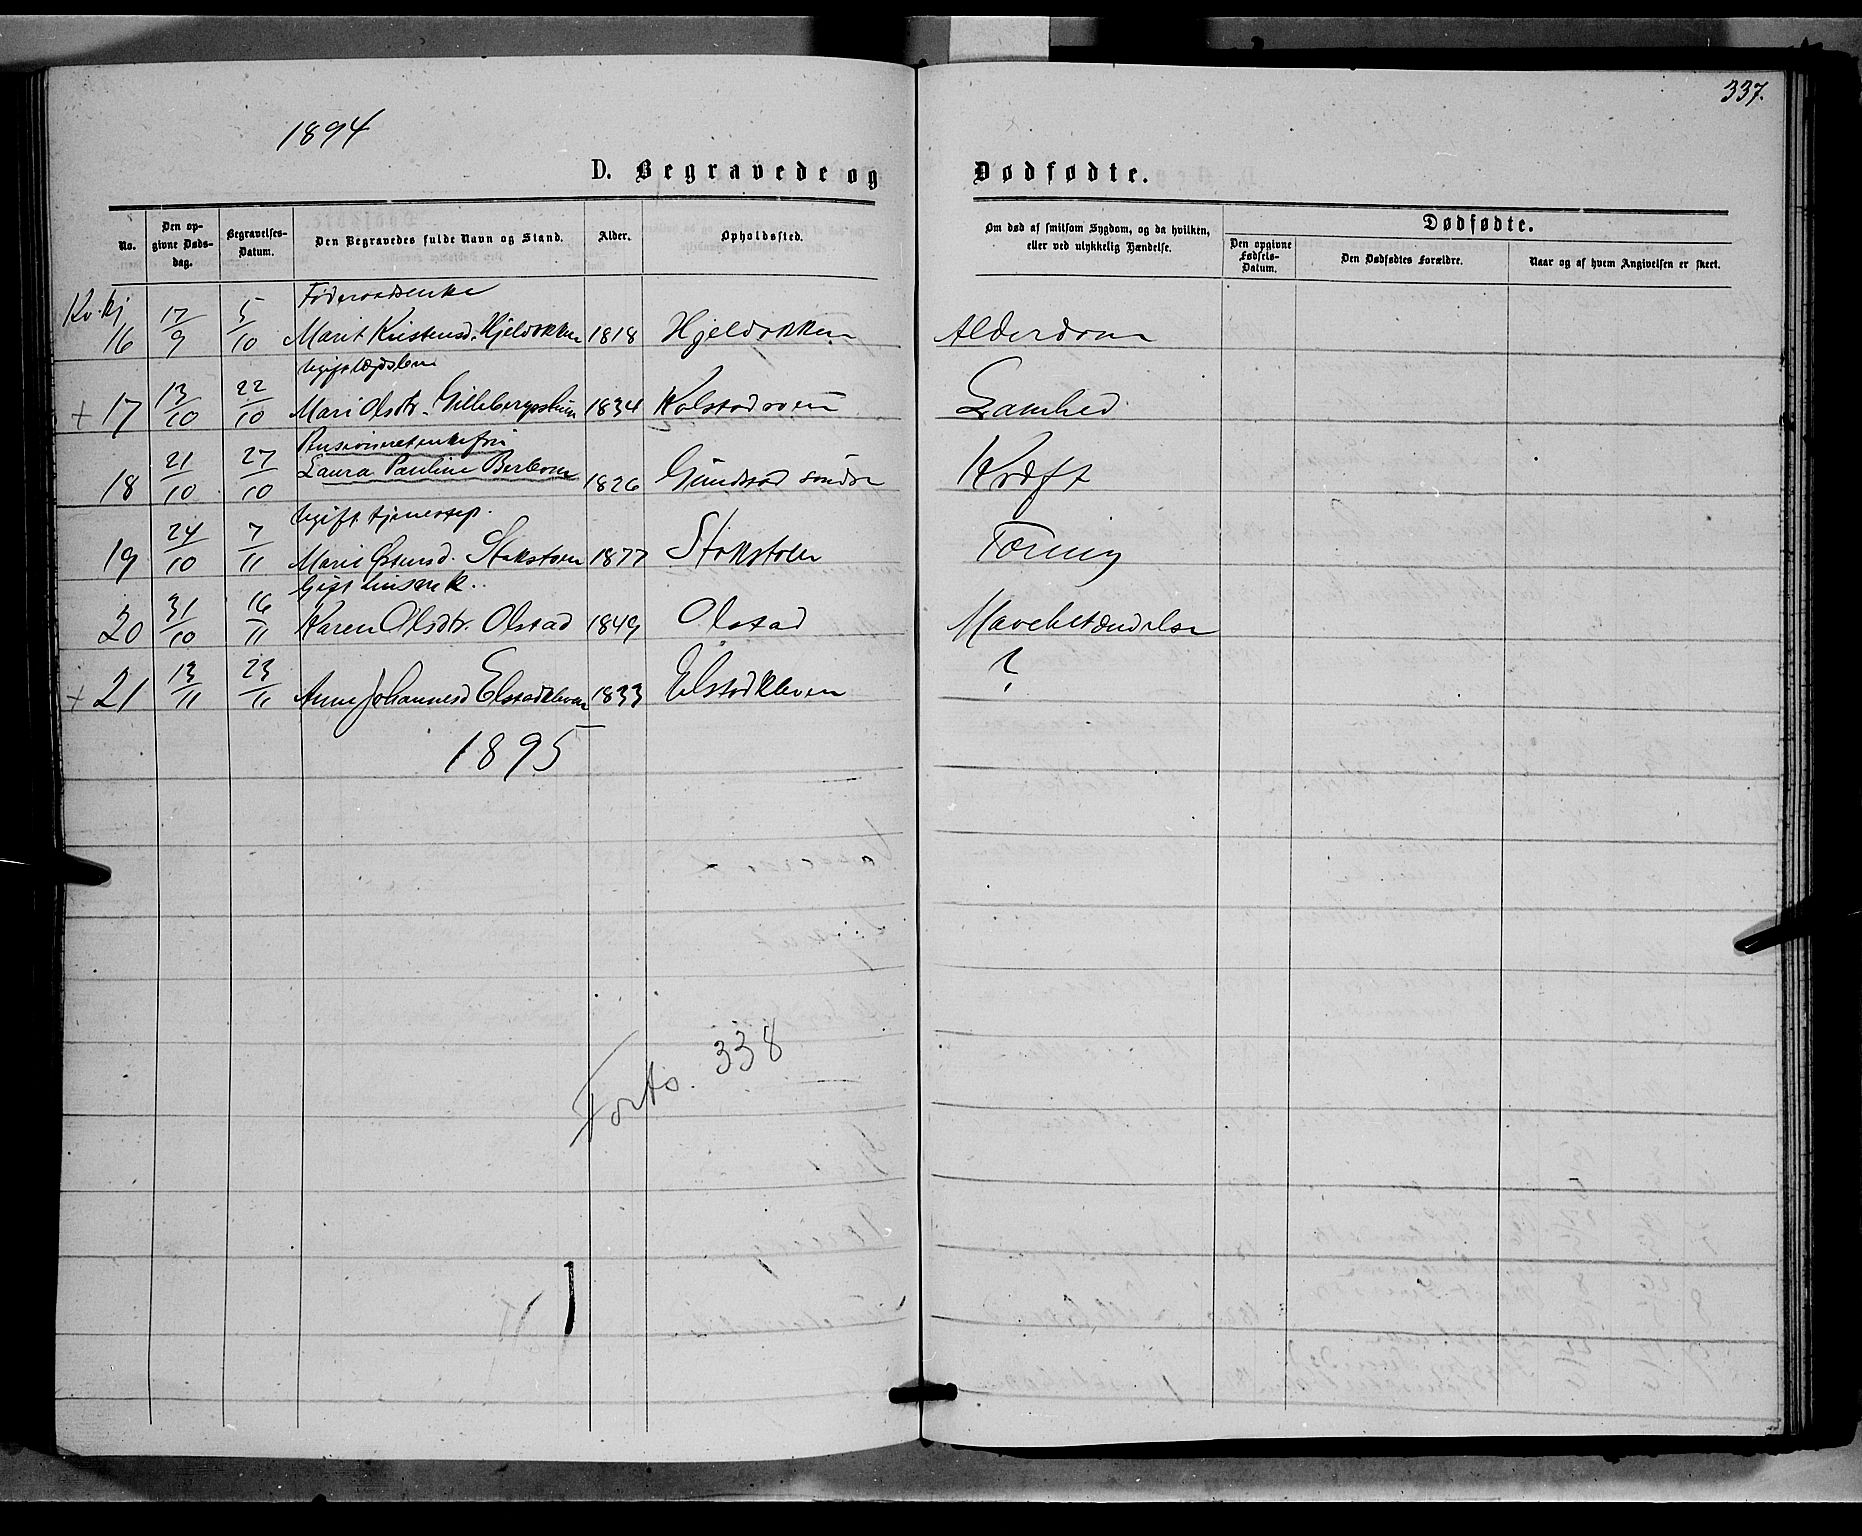 337.
1894
D. Begravede og Dødfødte.
No. Den opgivne Dødsdag. Begravelses-Datum. Den Begravedes fulde Navn og Stand. Alder. Opholdssted. Om død af smitsom Sygdom, og da hvilken, eller ved ulykkelig Hændelse. Dødfødte. Den opgivne Fødsels-Datum. Den Dødfødtes Forældre. Naar og af hvem Angivelsen er skeet.
Kv. kj
Føderaadsenke
16 17/9 5/10 Marit Kristensd. Hjeldokken 1818 Hjeldokken Alderdom
Ugift lægdslem
+ 17 13/10 22/10 Mari Olsdtr. 1834 Lamhed
18 21/10 27/10 Laura Pauline 1826 Gundstad søndre Kræft
Ugift tjenestep.
19 24/10 7/11 Marie Stokstoen 1877 Tæring
Gift
20 31/10 16/11 Karen Olsdtr. Olstad 1849 Olstad Mavebetændelse
+ 21 13/11 23/11 Anne Johannesd Elstadkleven 1833 Elstadkleven ?
1895
Forts. 338